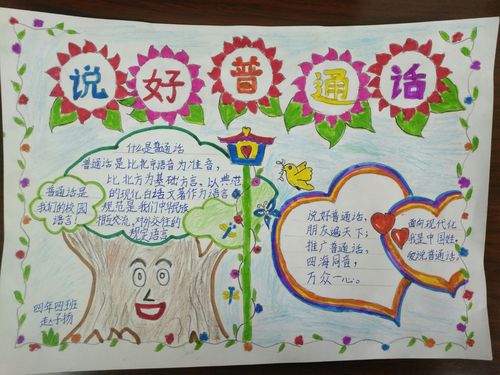 说好普通话
什么是普通话
普通话是比北京语音为准音,
比北方为基础方言、以典范
的现代白话文著作为语言
规范是我们中华民族
相互交流、对外交往的
规定语言
普通话是
我们的校园
语言
说好普通话,
朋友遍天下;
推广普通话,
四海同音,
万众一心。
面向现代化
我是中国娃,
爱说普通话,
四年四班
赵子扬